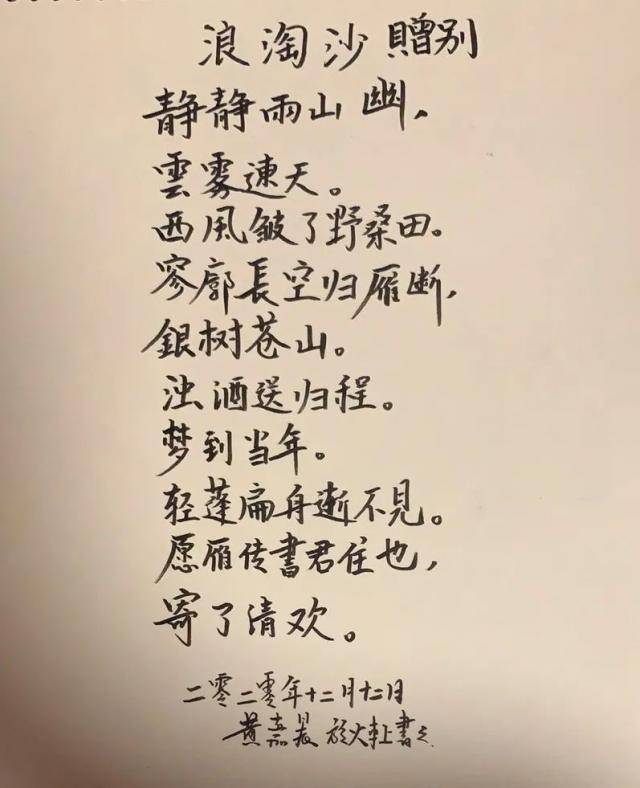 浪淘沙贈别
静静雨山幽，
雲雾連天。
西風皱了野桑田。
寥廓長空归雁断，
銀树苍山。
浊酒送归程。
梦到当年。
轻蓬扁舟渐不見。
愿雁传書君住也，
寄了清欢。
二零二零年十二月十二日
黄嘉晟於火車上書之